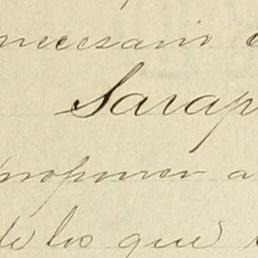 necesario
Sarap
proponer a
de los que